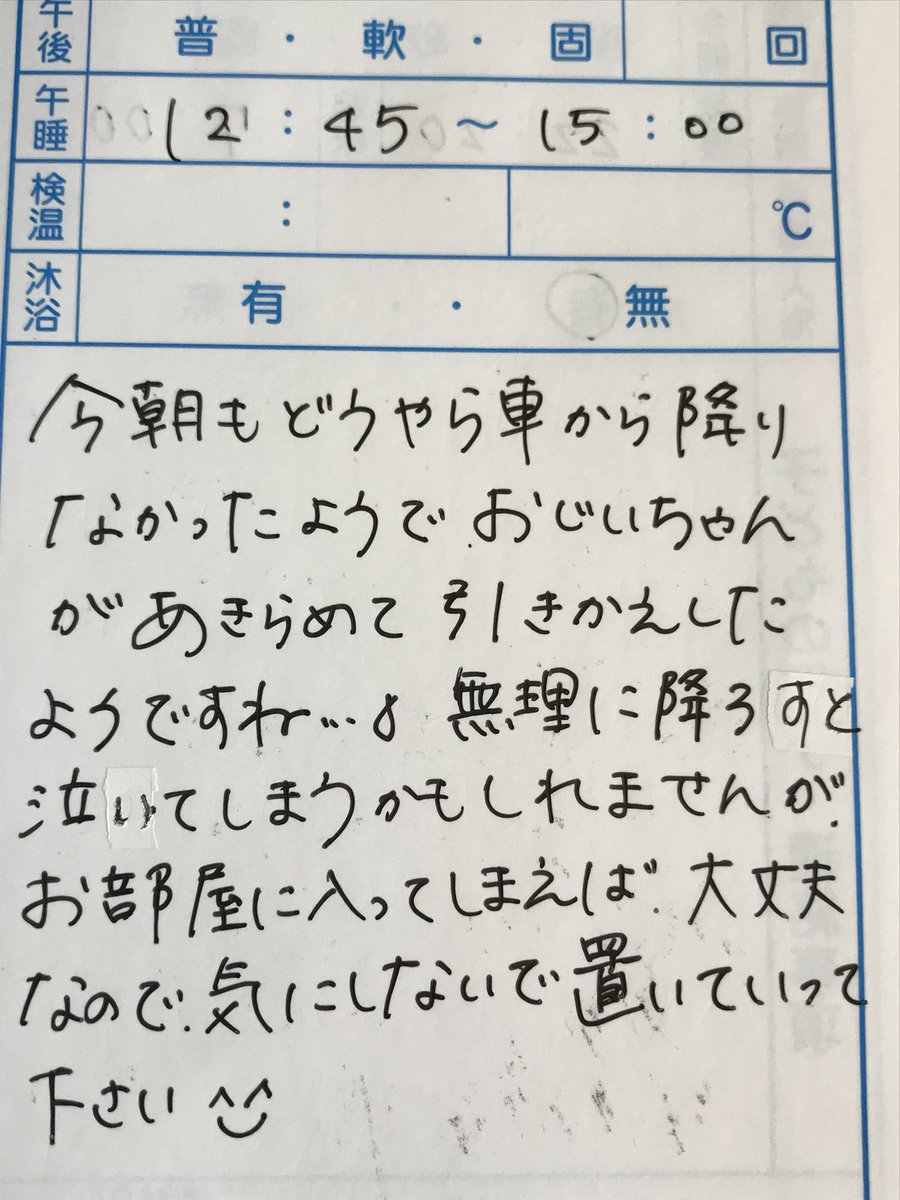 午後 普・軟・固 回
午睡 12:45~15:00
検温 : ℃
沐浴 有・無
今朝もどうやら車から降り
なかったようで、おじいちゃん
があきらめて引きかえした
ようですね…♪ 無理に降ろすと
泣いてしまうかもしれませんが、
お部屋に入ってしまえば、大丈夫
なので、気にしないで置いていって
下さい ^^